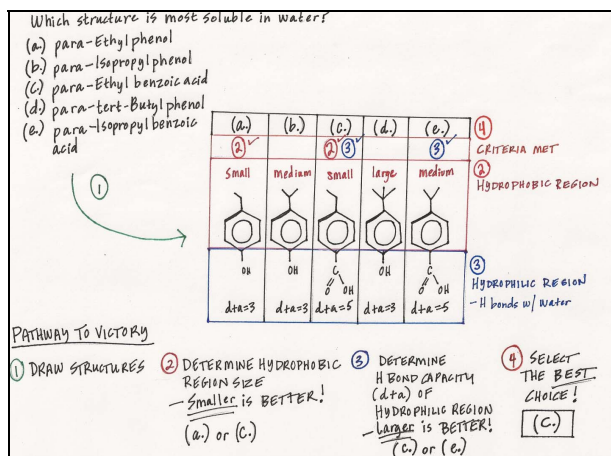 Which structure is most soluble in water?
(a.) para-Ethylphenol
(b.) para-Isopropylphenol
(c.) para-Ethyl benzoic acid
(d.) para-tert-Butylphenol
(e.) para-Isopropyl benzoic
acid
1
(a.) (b.) (c.) (d.) (e.) 4
2✓ 2 3✓ 3✓ CRITERIA MET
2
small medium small large medium HYDROPHOBIC REGION
3
OH OH C OH C HYDROPHILIC REGION
O OH O OH - H bonds w/ water
d+a=3 d+a=3 d+a=5 d+a=3 d+a=5
PATHWAY TO VICTORY
1 DRAW STRUCTURES
2 DETERMINE HYDROPHOBIC
REGION SIZE
- Smaller is BETTER!
(a.) or (c.)
3 DETERMINE
H BOND CAPACITY
(d+a) OF
HYDROPHILIC REGION
- Larger is BETTER!
(c.) or (e.)
4 SELECT
THE BEST
CHOICE!
(c.)